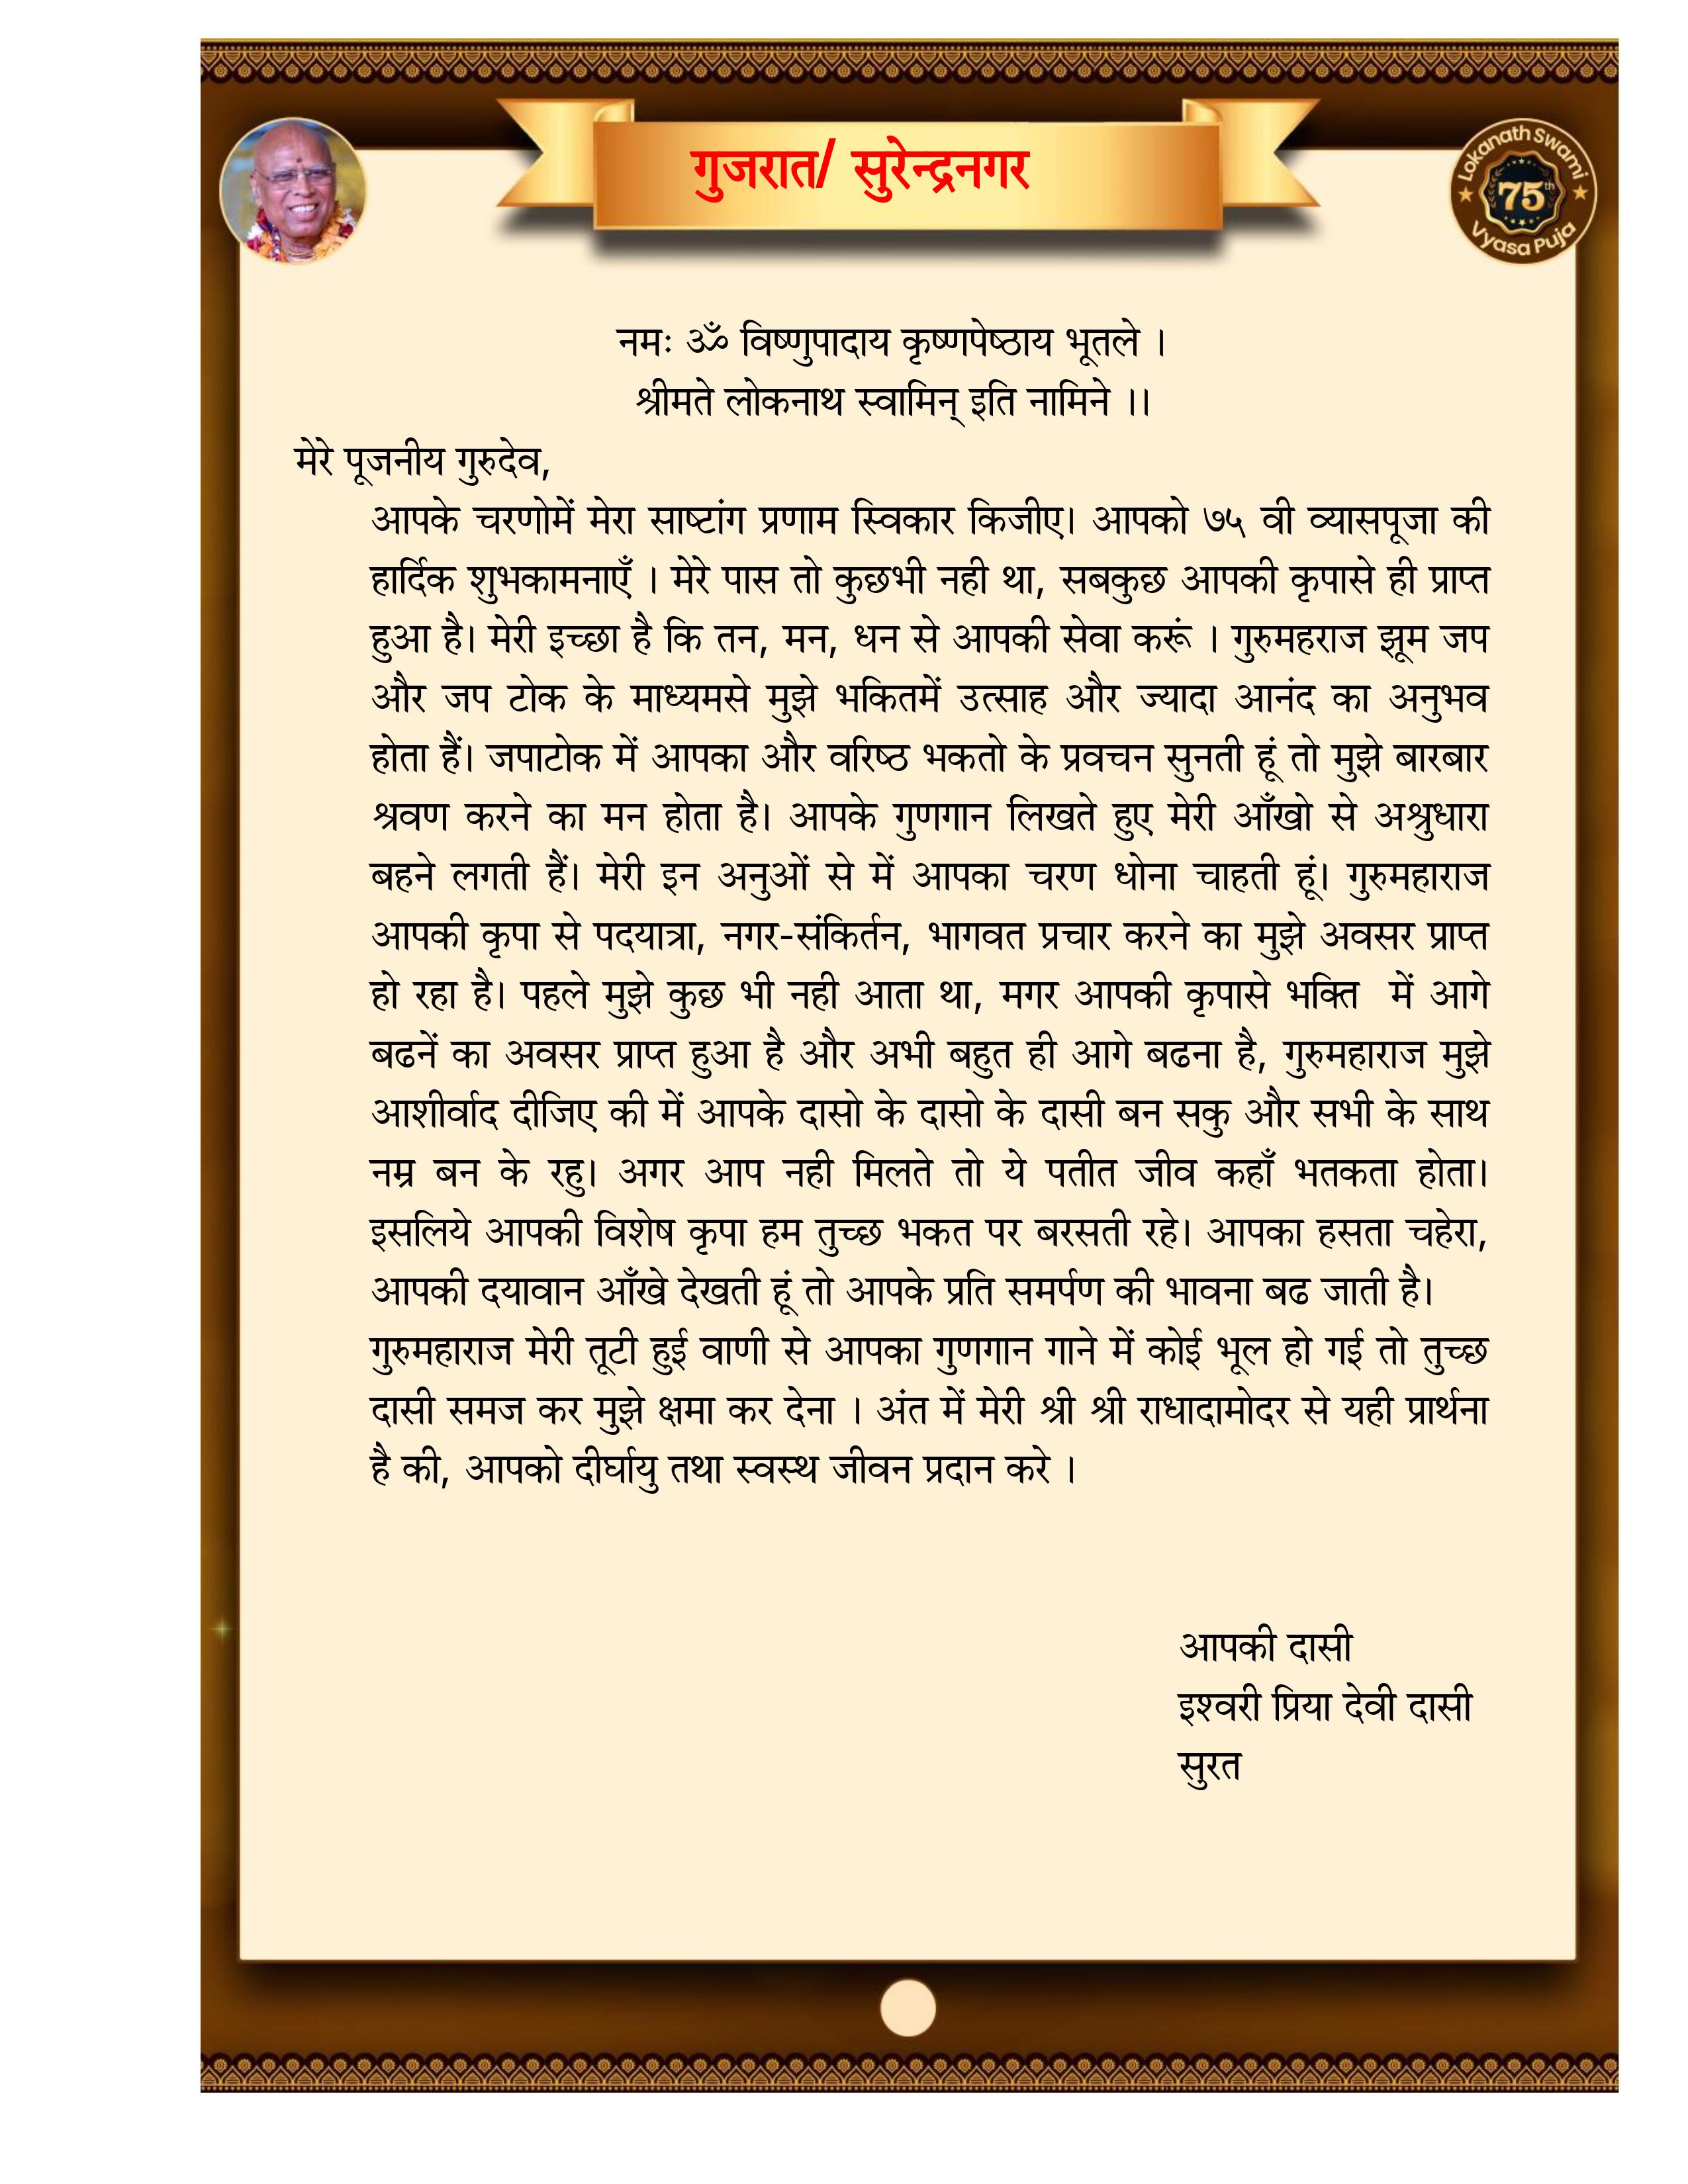 गुजरात/ सुरेन्द्रनगर
Lokanath Swami
75th
Vyasa Puja
नमः ॐ विष्णुपादाय कृष्णपेष्ठाय भूतले ।
श्रीमते लोकनाथ स्वामिन् इति नामिने ।।
मेरे पूजनीय गुरुदेव,
आपके चरणोमें मेरा साष्टांग प्रणाम स्विकार किजीए। आपको ७५ वी व्यासपूजा की
हार्दिक शुभकामनाएँ । मेरे पास तो कुछभी नही था, सबकुछ आपकी कृपासे ही प्राप्त
हुआ है। मेरी इच्छा है कि तन, मन, धन से आपकी सेवा करूं । गुरुमहराज झूम जप
और जप टोक के माध्यमसे मुझे भकितमें उत्साह और ज्यादा आनंद का अनुभव
होता हैं। जपाटोक में आपका और वरिष्ठ भकतो के प्रवचन सुनती हूं तो मुझे बारबार
श्रवण करने का मन होता है। आपके गुणगान लिखते हुए मेरी आँखो से अश्रुधारा
बहने लगती हैं। मेरी इन अनुओं से में आपका चरण धोना चाहती हूं। गुरुमहाराज
आपकी कृपा से पदयात्रा, नगर-संकिर्तन, भागवत प्रचार करने का मुझे अवसर प्राप्त
हो रहा है। पहले मुझे कुछ भी नही आता था, मगर आपकी कृपासे भक्ति में आगे
बढनें का अवसर प्राप्त हुआ है और अभी बहुत ही आगे बढना है, गुरुमहाराज मुझे
आशीर्वाद दीजिए की में आपके दासो के दासो के दासी बन सकु और सभी के साथ
नम्र बन के रहु। अगर आप नही मिलते तो ये पतीत जीव कहाँ भतकता होता।
इसलिये आपकी विशेष कृपा हम तुच्छ भकत पर बरसती रहे। आपका हसता चहेरा,
आपकी दयावान आँखे देखती हूं तो आपके प्रति समर्पण की भावना बढ जाती है।
गुरुमहाराज मेरी तूटी हुई वाणी से आपका गुणगान गाने में कोई भूल हो गई तो तुच्छ
दासी समज कर मुझे क्षमा कर देना । अंत में मेरी श्री श्री राधादामोदर से यही प्रार्थना
है की, आपको दीर्घायु तथा स्वस्थ जीवन प्रदान करे ।
आपकी दासी
इश्वरी प्रिया देवी दासी
सुरत